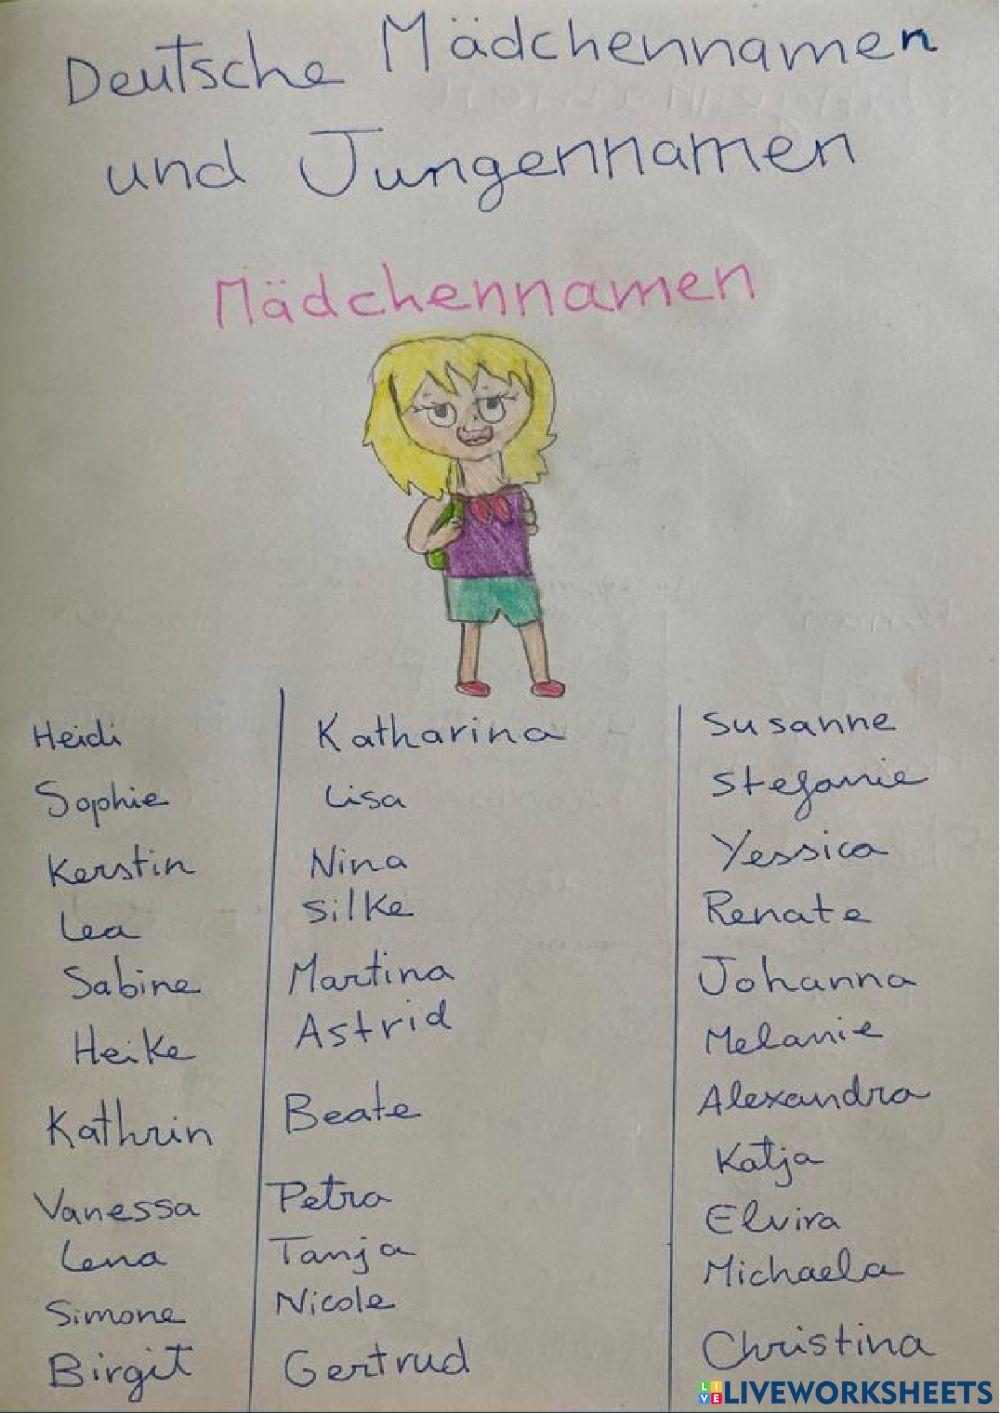 Deutsche Mädchennamen
und Jungennamen
Mädchennamen
Heidi
Sophie
Kerstin
Lea
Sabine
Heike
Kathrin
Vanessa
Lena
Simone
Birgit
Katharina
Lisa
Nina
Silke
Martina
Astrid
Beate
Petra
Tanja
Nicole
Gertrud
Susanne
Stefanie
Yessica
Renate
Johanna
Melanie
Alexandra
Katja
Elvira
Michaela
Christina
LIVE LIVEWORKSHEETS